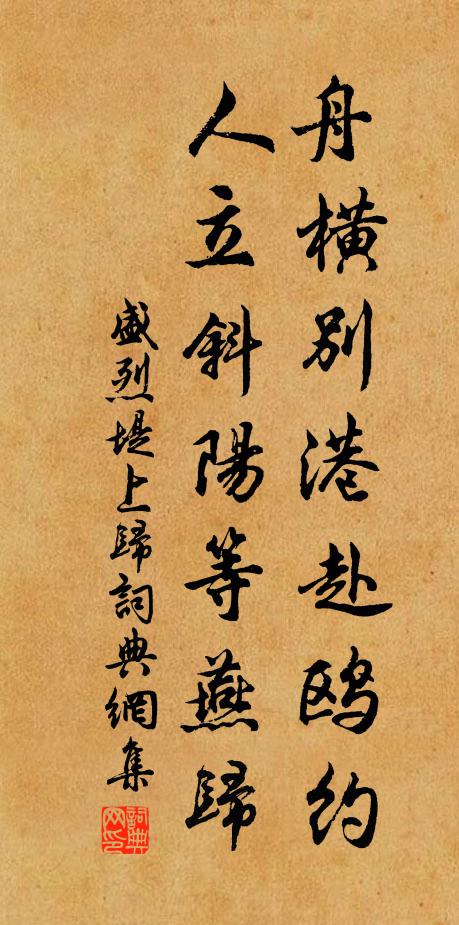 舟橫別港赴鸥約
人立斜陽等燕歸
盛烈堤上歸詞典網集
詞典网印